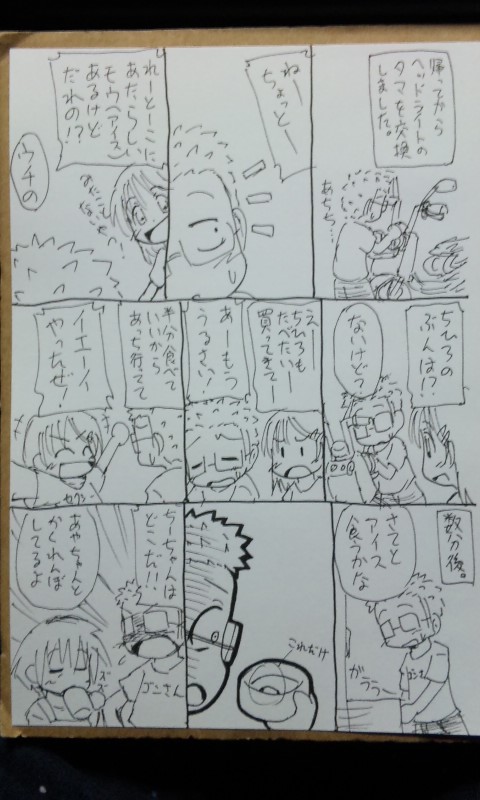 帰ってから
ヘッドライトの
タマを交換
しました。
あちち…
ねー
ちょっとー
れーとーこに
あたらしい
モウ(アイス)
あるけど
だれの!?
ウチの
ちひろの
ぶんは!?
ないけどっ
えー
ちひろも
たべたいー
買ってきてー
あーもっ
うるさい!
半分食べて
いいから
あっち行ってて
イエーイ
やったぜ!
数分後。
さてと
アイス
食うかな
ガララー
ゴンさん
これだけ
ちーちゃんは
どこだ!!
ゴンさん
あやちゃんと
かくれんぼ
してるよ
ズズ